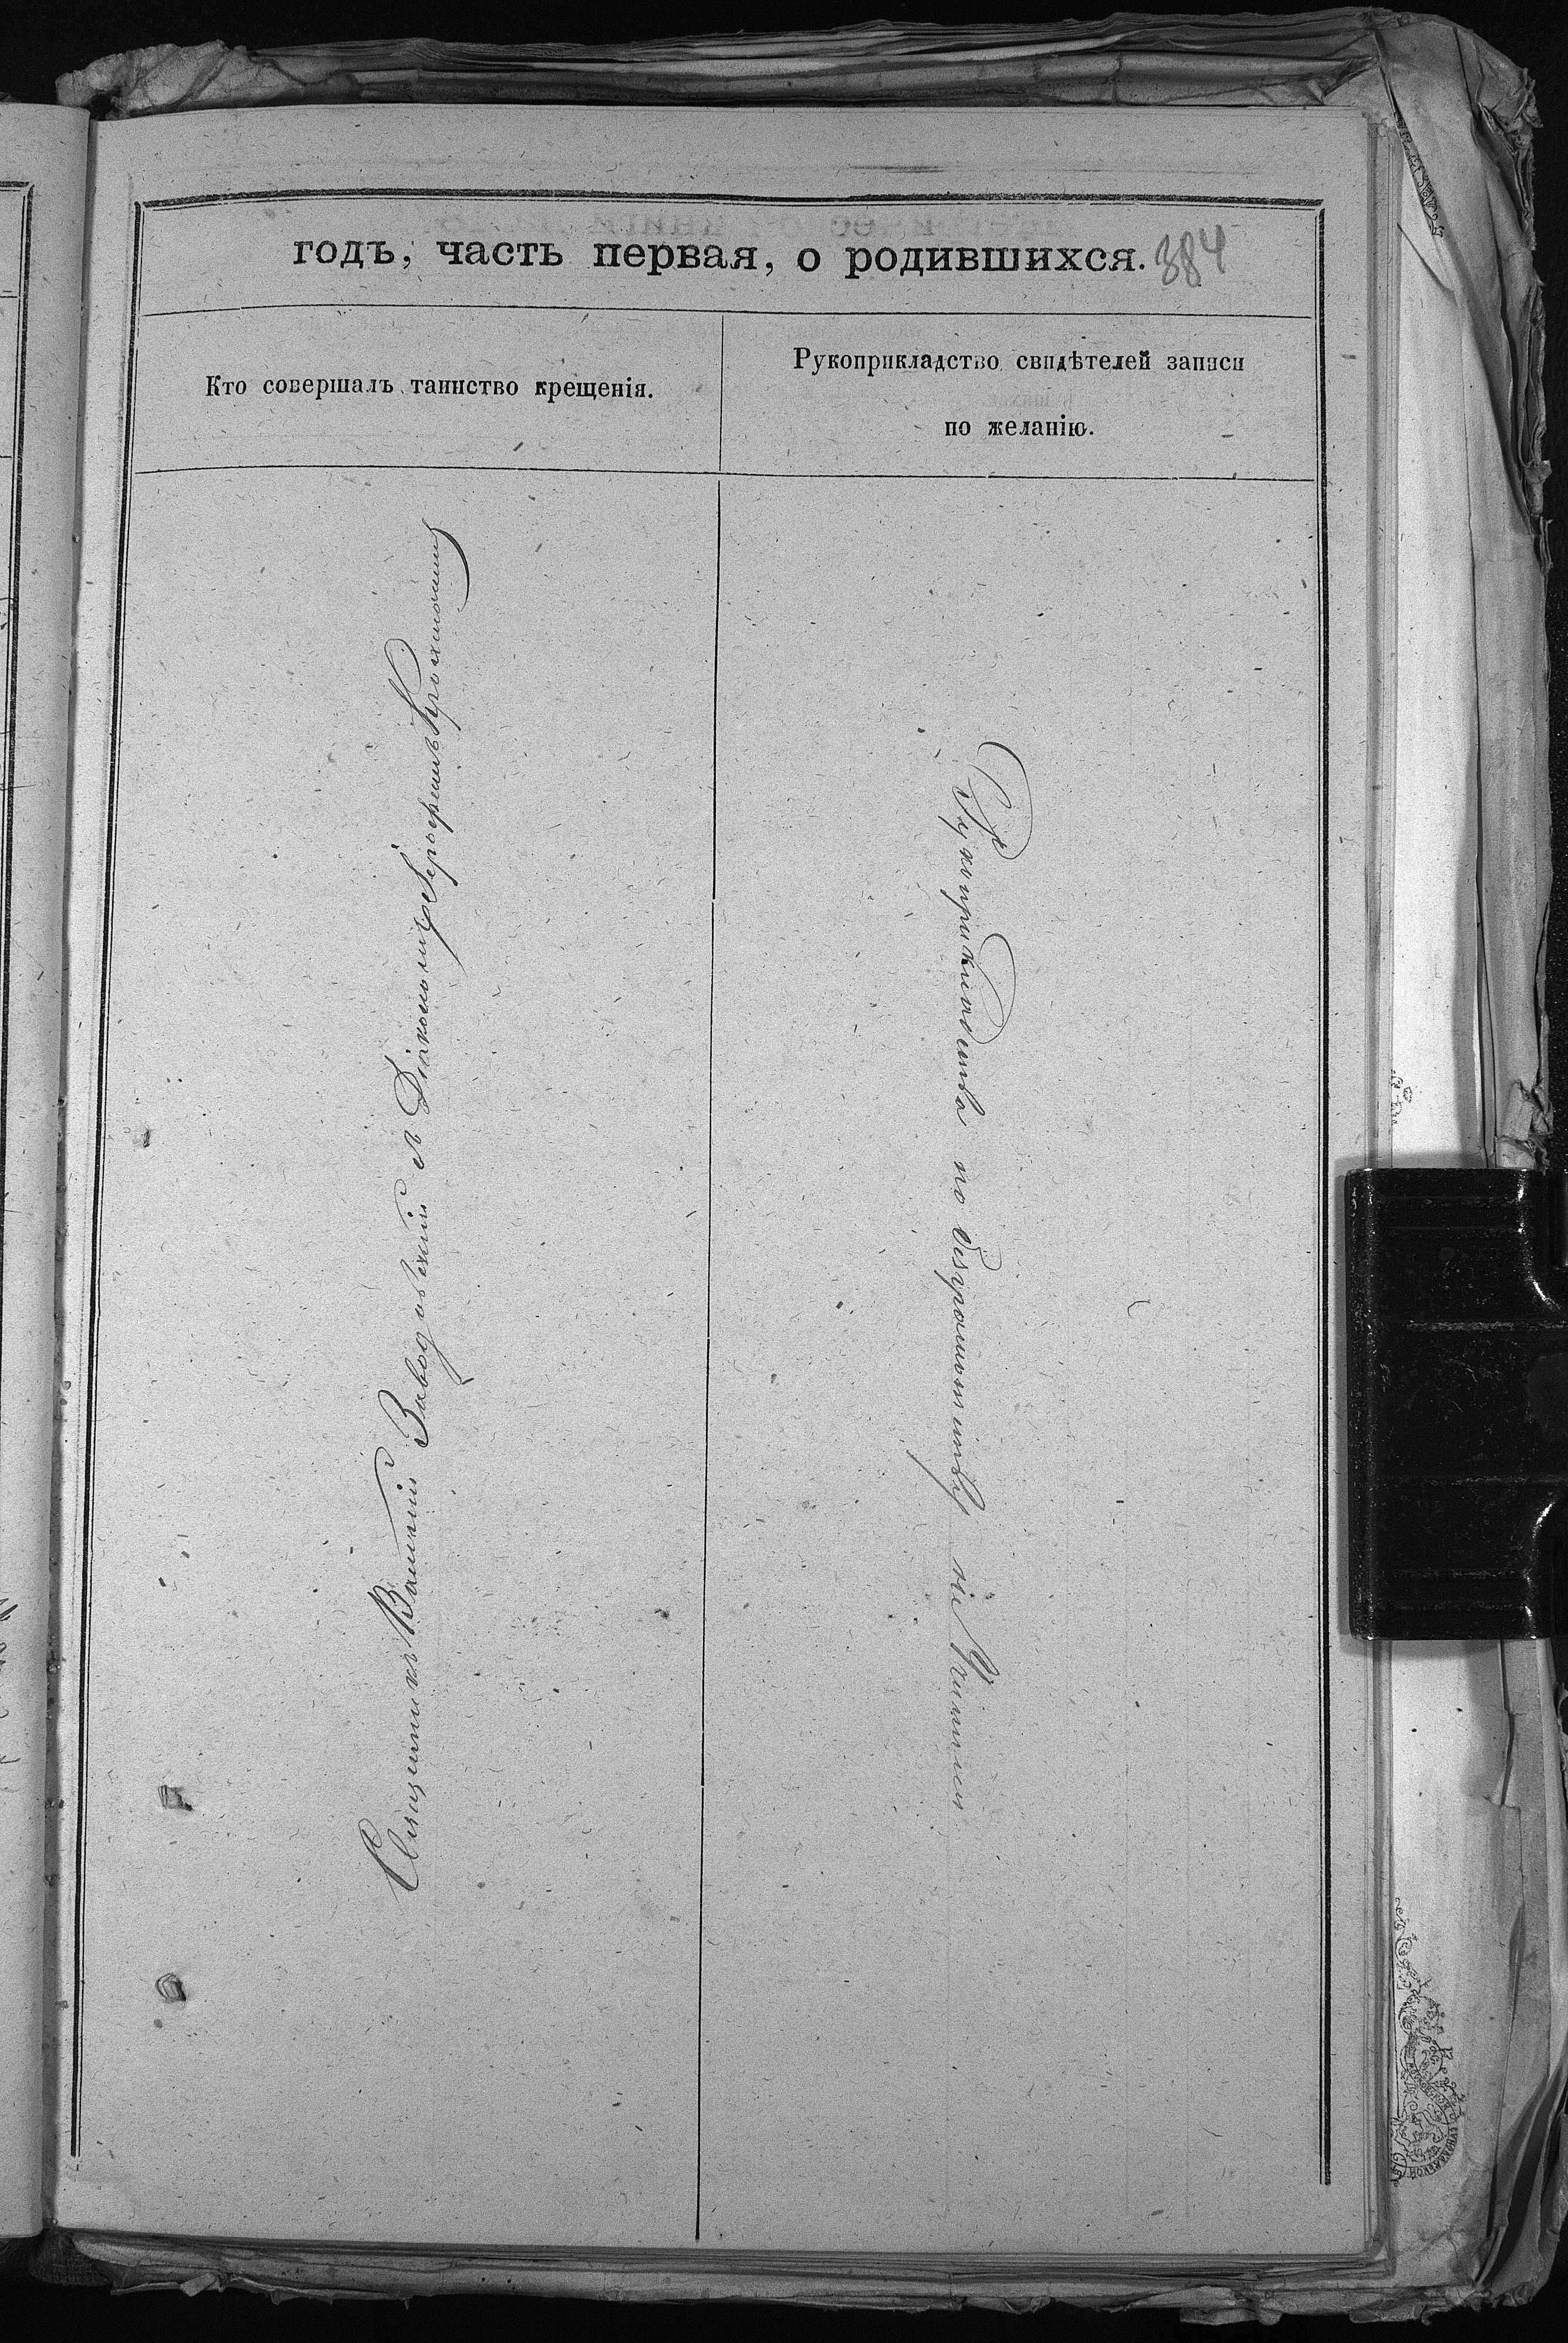 годъ, часть первая, о родившихся. 384
Кто совершалъ таинство крещенія.
Рукоприкладство свидѣтелей записи
по желанію.
Священникъ Василій Заводовскій Діакономъ
Рукоприкладства по безграмотству не учинили